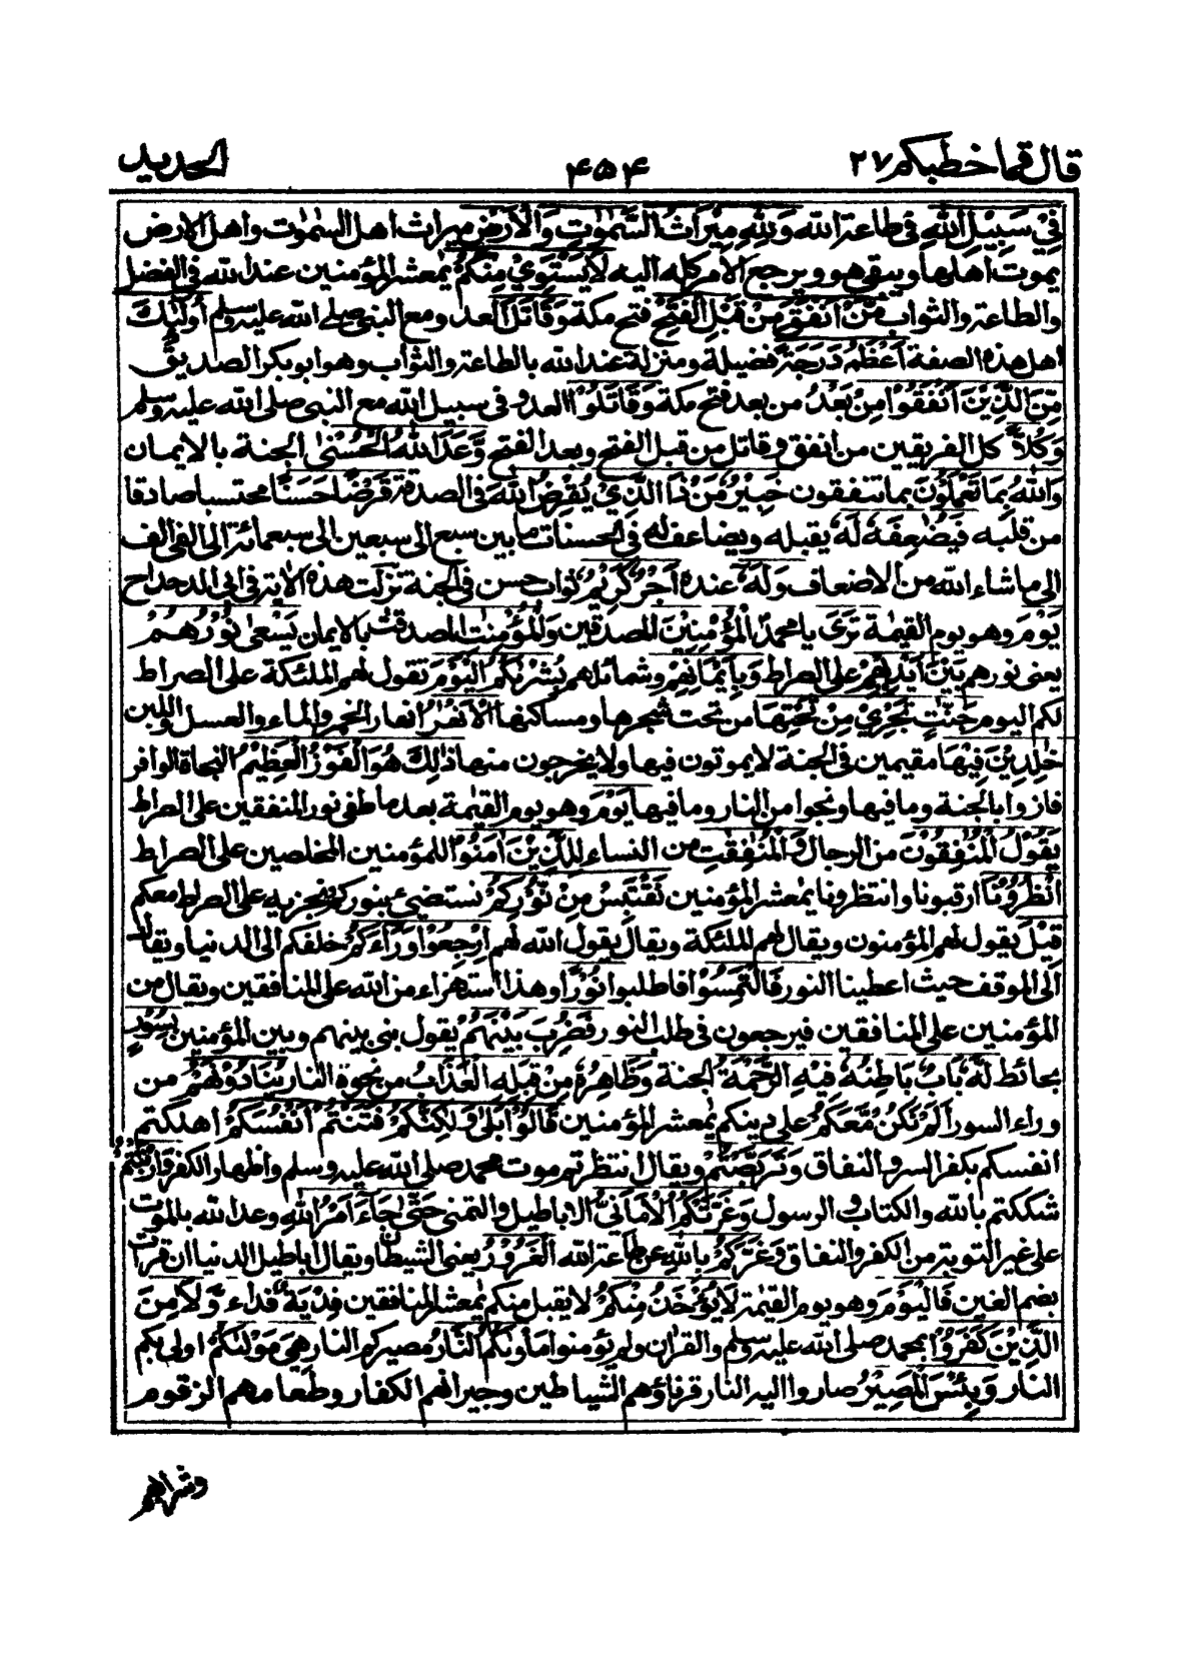 قال فما خطبكم ٢٧
٤٥٤
الحديد
فِيْ سَبِيْلِ اللّٰهِ فى طاعة الله وَلِلّٰهِ مِيْرَاثُ السَّمٰوٰتِ وَالْاَرْضِ ميراث اهل السمٰوٰت واهل الارض
يموت اهلها ويبقى هو ويرجع الامر كله اليه لَا يَسْتَوِيْ مِنْكُمْ يٰمعشر المؤمنين عند الله فى الفضل
والطاعة والثواب مَّنْ اَنْفَقَ مِنْ قَبْلِ الْفَتْحِ فتح مكة وَقَاتَلَ العدو مع النبى صلى الله عليه وسلم اُولٰٓئِكَ
اهل هذه الصفة اَعْظَمُ دَرَجَةً فضيلة ومنزلة عند الله بالطاعة والثواب وهو ابو بكر الصديق
مِّنَ الَّذِيْنَ اَنْفَقُوْا مِنْۢ بَعْدُ من بعد فتح مكة وَقَاتَلُوْا العدو فى سبيل الله مع النبى صلى الله عليه وسلم
وَكُلًّا كل الفريقين من انفق وقاتل من قبل الفتح وبعد الفتح وَّعَدَ اللّٰهُ الْحُسْنٰى الجنة بالايمان
وَاللّٰهُ بِمَا تَعْمَلُوْنَ بما تنفقون خَبِيْرٌ مَنْ ذَا الَّذِيْ يُقْرِضُ اللّٰهَ فى الصدقة قَرْضًا حَسَنًا محتسبا صادقا
من قلبه فَيُضٰعِفَهٗ لَهٗ يقبله ويضاعف له فى الحسنات ما بين سبع الى سبعين الى سبعمائة الى الفى الف
الى ما شاء الله من الاضعاف وَلَهٗ عنده اَجْرٌ كَرِيْمٌ ثواب حسن فى الجنة نزلت هذه الاية فى ابى الدحداح
يَوْمَ وهو يوم القيمة تَرَى يا محمد الْمُؤْمِنِيْنَ المصدقين وَالْمُؤْمِنٰتِ المصدقات بالايمان يَسْعٰى نُوْرُهُمْ
يعنى نورهم بَيْنَ اَيْدِيْهِمْ على الصراط وَبِاَيْمَانِهِمْ وشمائلهم بُشْرٰىكُمُ الْيَوْمَ تقول لهم الملئكة على الصراط
لكم اليوم جَنّٰتٌ تَجْرِيْ مِنْ تَحْتِهَا من تحت شجرها ومساكنها الْاَنْهٰرُ انهار الخمر والماء والعسل واللبن
خٰلِدِيْنَ فِيْهَا مقيمين فى الجنة لا يموتون فيها ولا يخرجون منها ذٰلِكَ هُوَ الْفَوْزُ الْعَظِيْمُ النجاة الوافر
فازوا بالجنة وما فيها ونجوا من النار وما فيها يَوْمَ وهو يوم القيمة بعد ما طفى نور المنفقين على الصراط
يَقُوْلُ الْمُنٰفِقُوْنَ من الرجال وَالْمُنٰفِقٰتُ من النساء لِلَّذِيْنَ اٰمَنُوا للمؤمنين المخلصين على الصراط
انْظُرُوْنَا ارقبونا وانتظرونا يٰمعشر المؤمنين نَقْتَبِسْ مِنْ نُّوْرِكُمْ نستضئ بنوركم ونجز به على الصراط معكم
قِيْلَ يقول لهم المؤمنون ويقال لهم الملئكة ويقال يقول الله لهم ارْجِعُوْا وَرَآءَكُمْ خلفكم الى الدنيا ويقال
الى الموقف حيث اعطينا النور فَالْتَمِسُوْا فاطلبوا نُوْرًا وهذا استهزاء من الله على المنافقين ويقال من
المؤمنين على المنافقين فيرجعون فى طلب النور فَضُرِبَ بَيْنَهُمْ يقول بنى بينهم وبين المؤمنين بِسُوْرٍ
بحائط لَهٗ بَابٌ بَاطِنُهٗ فِيْهِ الرَّحْمَةُ الجنة وَظَاهِرُهٗ مِنْ قِبَلِهِ الْعَذَابُ من نحوه النار يُنَادُوْنَهُمْ من
وراء السور اَلَمْ نَكُنْ مَّعَكُمْ على دينكم يٰمعشر المؤمنين قَالُوْا بَلٰى وَلٰكِنَّكُمْ فَتَنْتُمْ اَنْفُسَكُمْ اهلكتم
انفسكم بكفر السر والنفاق وَتَرَبَّصْتُمْ ويقال انتظرتم موت محمد صلى الله عليه وسلم واظهار الكفر وَارْتَبْتُمْ
شككتم بالله والكتاب والرسول وَغَرَّتْكُمُ الْاَمَانِيُّ الاباطيل والتمنى حَتّٰى جَآءَ اَمْرُ اللّٰهِ وعد الله بالموت
على غير التوبة من الكفر والنفاق وَغَرَّكُمْ بِاللّٰهِ عن طاعة الله الْغَرُوْرُ يعنى الشيطان ويقال اباطيل الدنيا ان قرأت
بضم الغين فَالْيَوْمَ وهو يوم القيمة لَا يُؤْخَذُ مِنْكُمْ لا يقبل منكم يٰمعشر المنافقين فِدْيَةٌ فداء وَّلَا مِنَ
الَّذِيْنَ كَفَرُوْا بمحمد صلى الله عليه وسلم والقرآن ولم يؤمنوا مَاْوٰىكُمُ النَّارُ مصيركم النار هِيَ مَوْلٰىكُمْ اولى بكم
النار وَبِئْسَ الْمَصِيْرُ صاروا اليه النار قرناؤهم الشياطين وجيرانهم الكفار وطعامهم الزقوم
وشرابهم